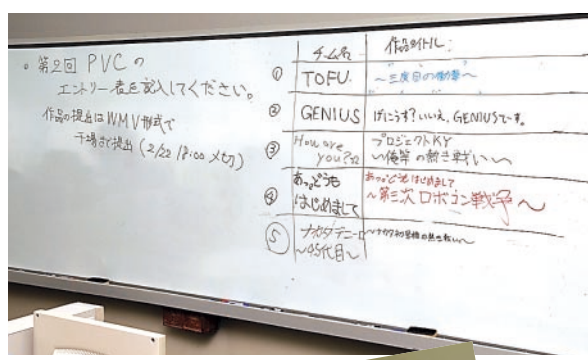 。第2回 PVCの
エントリー者を記入してください。
作品の提出はWMV形式で
干場まで提出 (2/22 18:00 〆切)
チーム名 作品タイトル:
① TOFU. 〜三度目の衝撃〜
② GENIUS げにうす?いいえ、GENIUSです。
③ How are you? プロジェクトKY
〜俺等の熱き戦い〜
④ あっ、どうも はじめまして あっ、どうもはじめまして
〜第三次ロボコン戦争〜
⑤ ナカタデニーロ
〜45代目〜